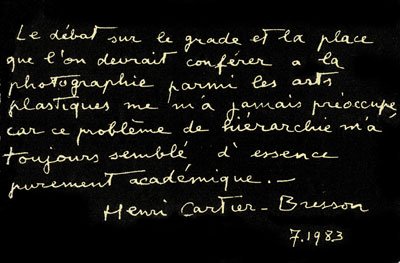 Le débat sur le grade et la place
que l'on devrait conférer a la
photographie parmi les arts
plastiques me m'a jamais préoccupé
car ce problème de hiérarchie m'a
toujours semblé d'essence
purement académique. —
Henri Cartier-Bresson
7.1983